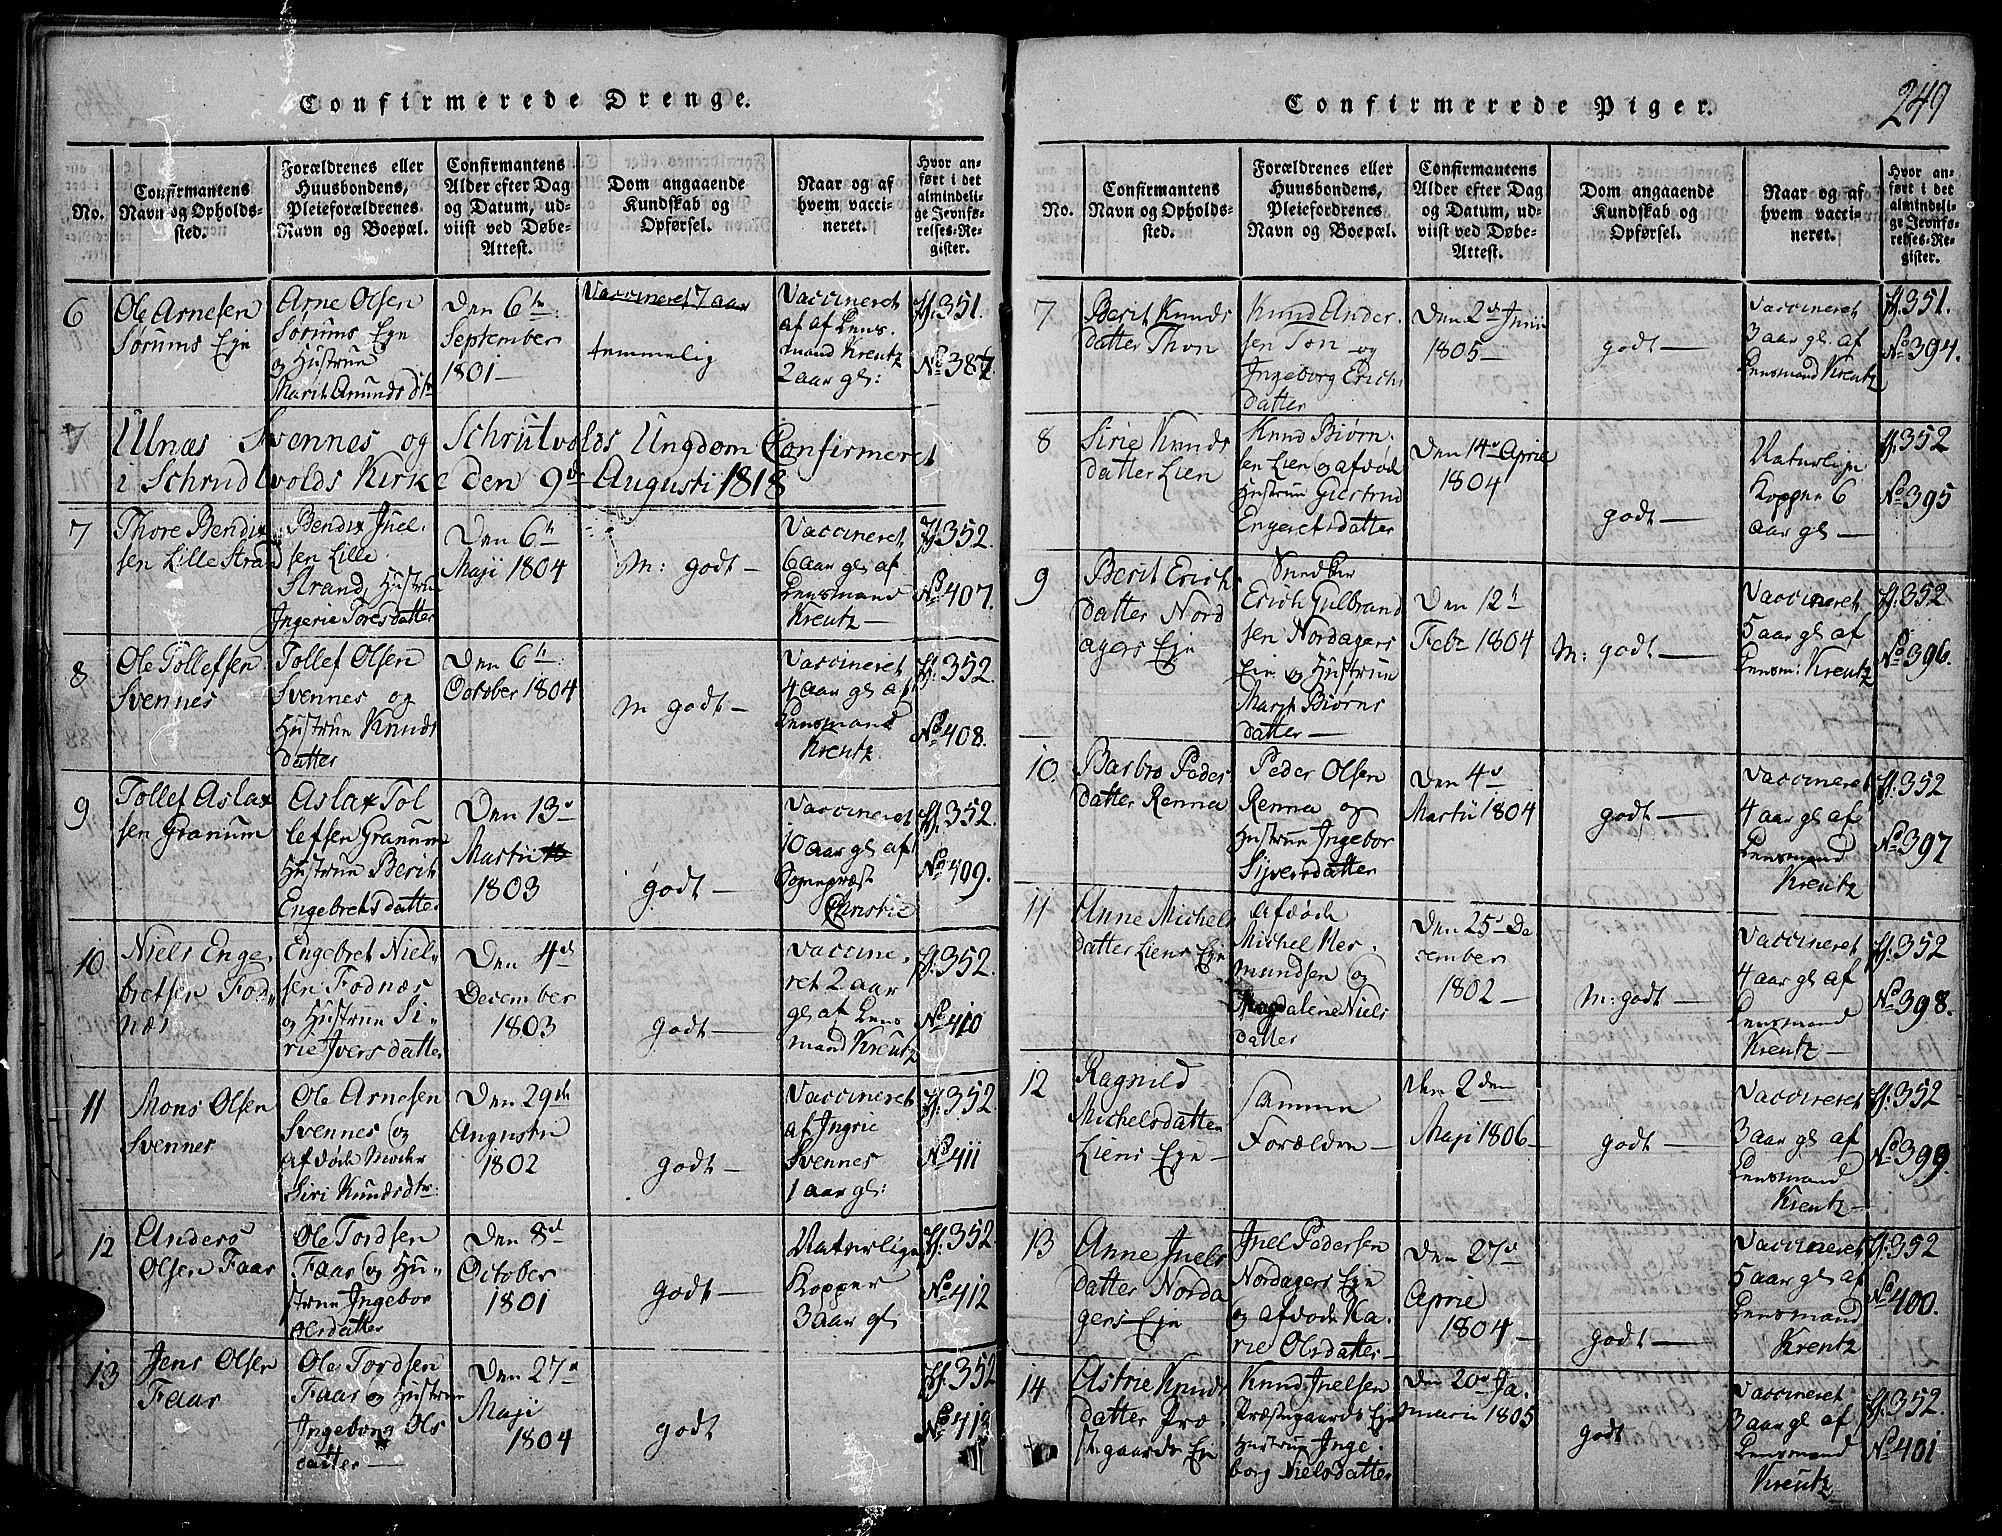 Confirmerede Drenge.
No.
Confirmantens
Navn og Opholds-
sted.
Forældrenes eller
Huusbondens,
Pleieforældrenes
Navn og Boepæl.
Confirmantens
Alder efter Dag
og Datum, ud-
viist ved Døbe-
Attest.
Dom angaaende
Kundskab og
Opførsel.
Naar og af
hvem vacci-
neret.
Hvor an-
ført i det
almindeli-
ge Jevnfø-
relses-Re-
gister.
6
Ole Arnesen
Sørums Eje
Arne Olsen
Sørums Eje
og Hustrue
Marit Amunds Dtr
Den 6te
September
1801
Vaccineret 7 aar
temmelig
Vaccineret
af af Lens-
mand Kreutz
2 aar gl:
ff. 351.
No 387.
7
Ulnæs Svennes og Schrutvolds Ungdom Confirmeret
i Schrudtvolds Kirke den 9de Augusti 1818
7
Thore Bendix
sen Lille Strand
Bendix Juel-
sen Lille
Strand, Hustrue
Ingerie Toresdatter
Den 6te
Maji 1804
M: godt —
Vaccineret
6 aar gl af
Lensmand
Kreutz —
ff. 352.
No 407.
8
Ole Tollefsen
Svennes
Tollef Olsen
Svennes og
Hustrue Knuds
datter
Den 6te
October 1804
m godt —
Vaccineret
4 aar gl af
Lensmand
Kreutz
ff. 352.
No 408.
9
Tollef Aslax
sen Granum
Aslax Tol
lefsen Granum
Hustrue Berit
Engebretsdatter
Den 13de
Martii
1803
godt —
Vaccineret
10 aar gl af
Sognepræst
Christie
ff. 352.
No 409.
10
Niels Enge-
bretsen Fod-
næs
Engebret Niel-
sen Fodnæs
og Hustrue Si-
rie Iversdatter
Den 4de
December
1803
godt —
Vaccine-
ret 2 aar
gl af Lens
mand Kreutz
ff. 352.
No 410
11
Mons Olsen
Svennes
Ole Arnesen
Svennes og
afdøde Moder
Siri Knudsdtr:
Den 29de
Augusti
1802
godt —
Vaccineret
af Ingrie
Svennes
1 aar gl:
ff. 352.
No 411
12
Anders
Olsen Faar
Ole Tordsen
Faar og Hu-
strue Ingebor
Olsdatter
Den 8de
October
1801
godt —
Naturlige
Kopper
3 aar gl
ff. 352.
No 412
13
Jens Olsen
Faar
Ole Tordsen
Faar og Hustrue
Ingeborg Ols
datter —
Den 27de
Maji
1804
godt
ff. 352
No 413
Confirmerede Piger.
249
No.
Confirmantens
Navn og Opholds-
sted.
Forældrenes eller
Huusbondens,
Pleiefordrenes
Navn og Boepæl.
Confirmantens
Alder efter Dag
og Datum, ud-
viist ved Døbe-
Attest.
Dom angaaende
Kundskab og
Opførsel.
Naar og af
hvem vacci-
neret.
Hvor an-
ført i det
almindeli-
ge Jevnfø-
relses-Re-
gister.
7
Berit Knuds
datter Thon
Knud Ander-
sen Ton og
Ingeborg Erichs
datter
Den 2de Junii
1805 —
godt —
Vaccineret
3 aar gl. af
Lensmand Kreutz
ff. 351.
No 394.
8
Sirie Knuds
datter Lien
Knud Biørn-
sen Lien og afdøde
Hustrue Giertrud
Engeretsdatter
Den 14de Aprie
1804
godt —
Naturlige
Kopper 6
aar gl —
ff. 352
No 395
9
Berit Erichs
datter Nord
agers Eje
Snedker
Erich Gulbrand
sen Nordagers
Eje og Hustrue
Marit Biørns
datter —
Den 12te
Febr 1804
M: godt —
Vaccineret
5 aar gl af
Lensm: Kreutz
ff. 352
No 396.
10.
Barbro Peders
datter Renna
Peder Olsen
Renna og
Hustrue Ingebor
Sijversdatter
Den 4de
Martii 1804
godt —
Vaccineret
4 aar gl af
Lensmand
Kreutz
ff. 352
No 397
11
Anne Michels
datter Liens Eje
Afdøde
Michel Her-
mundsen og
Magdalene Niels
datter
Den 25de De
cember
1802 —
M: godt —
Vaccineret
4 aar gl af
Lensmand
Kreutz —
ff. 352
No 398.
12
Ragnild
Michelsdatter
Liens Eje —
Samme
Forældre —
Den 2den
Maji 1806 —
godt —
Vaccineret
3 aar gl af
Lensmand
Kreutz —
ff. 352
No 399.
13
Anne Juels
datter Norda
gers Eje
Juel Pedersen
Nordagers Eje
og afdøde Ka-
rie Olsdatter —
Den 27de
Aprie
1804 —
godt —
Vaccineret
5 aar gl af
Lensmand
Kreutz
ff. 352
No 400.
14
Astrie Knuds
datter Præ-
stgaards Eje
Knud Juelsen
Præstegaards Eje
Hustrue Inge-
borg Nielsdatter
Den 20de Ja-
nuarii 1805
godt
Vaccineret
3 aar gl af
Lensmand
Kreutz
ff. 352.
No 401